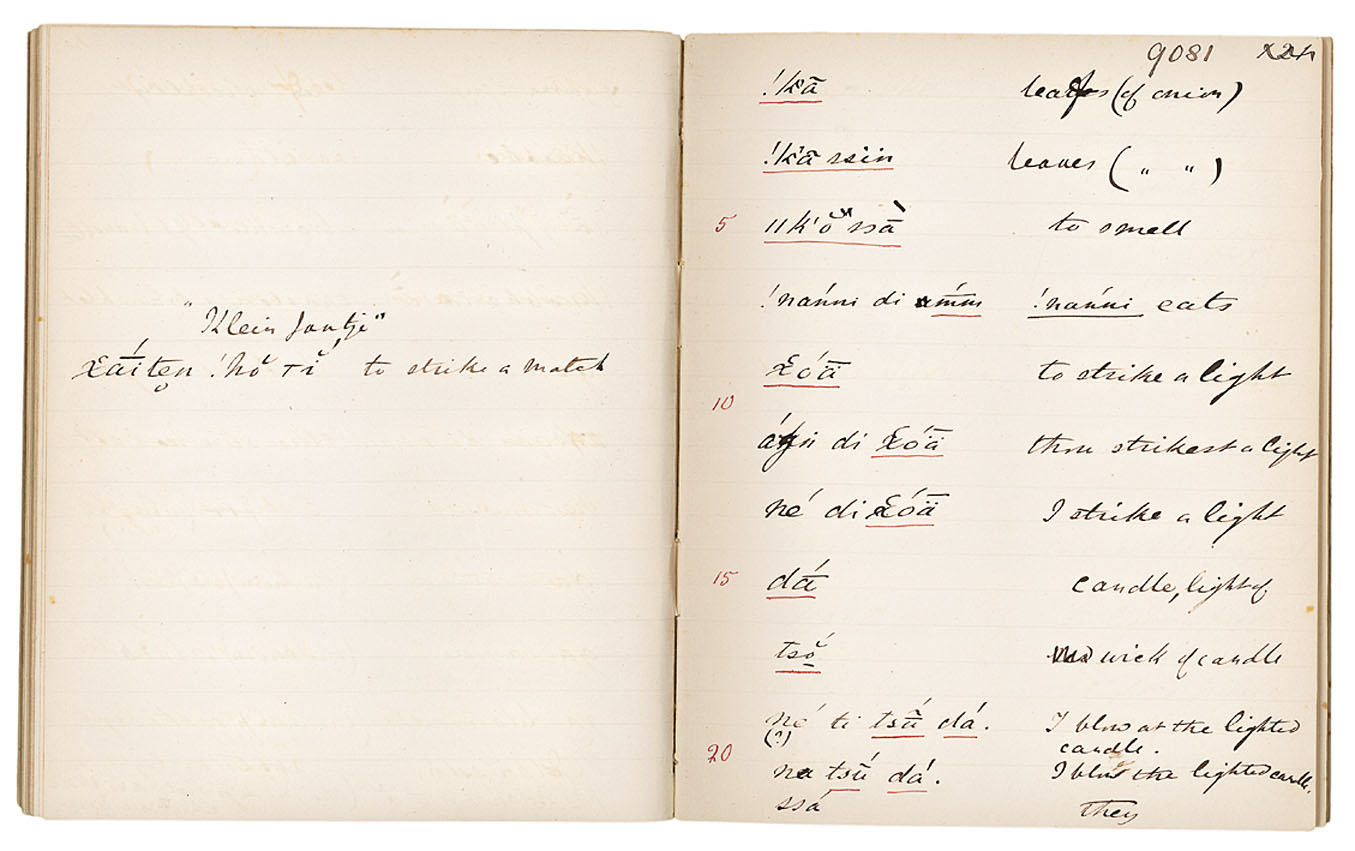 "Klein Jantje"
to strike a match
9081
!kā leaf (of onion)
!k'ā ssin leaves ( " " )
5 to smell
!nańni di !nańni eats
to strike a light
10
di thou strikest a light
né di I strike a light
15 dā́ candle, light of
tsŏ́ wick of candle
né ti dá. I blow at the lighted
(?) candle.
20 na tsū́ dá. I blow the lighted candle.
ssá they